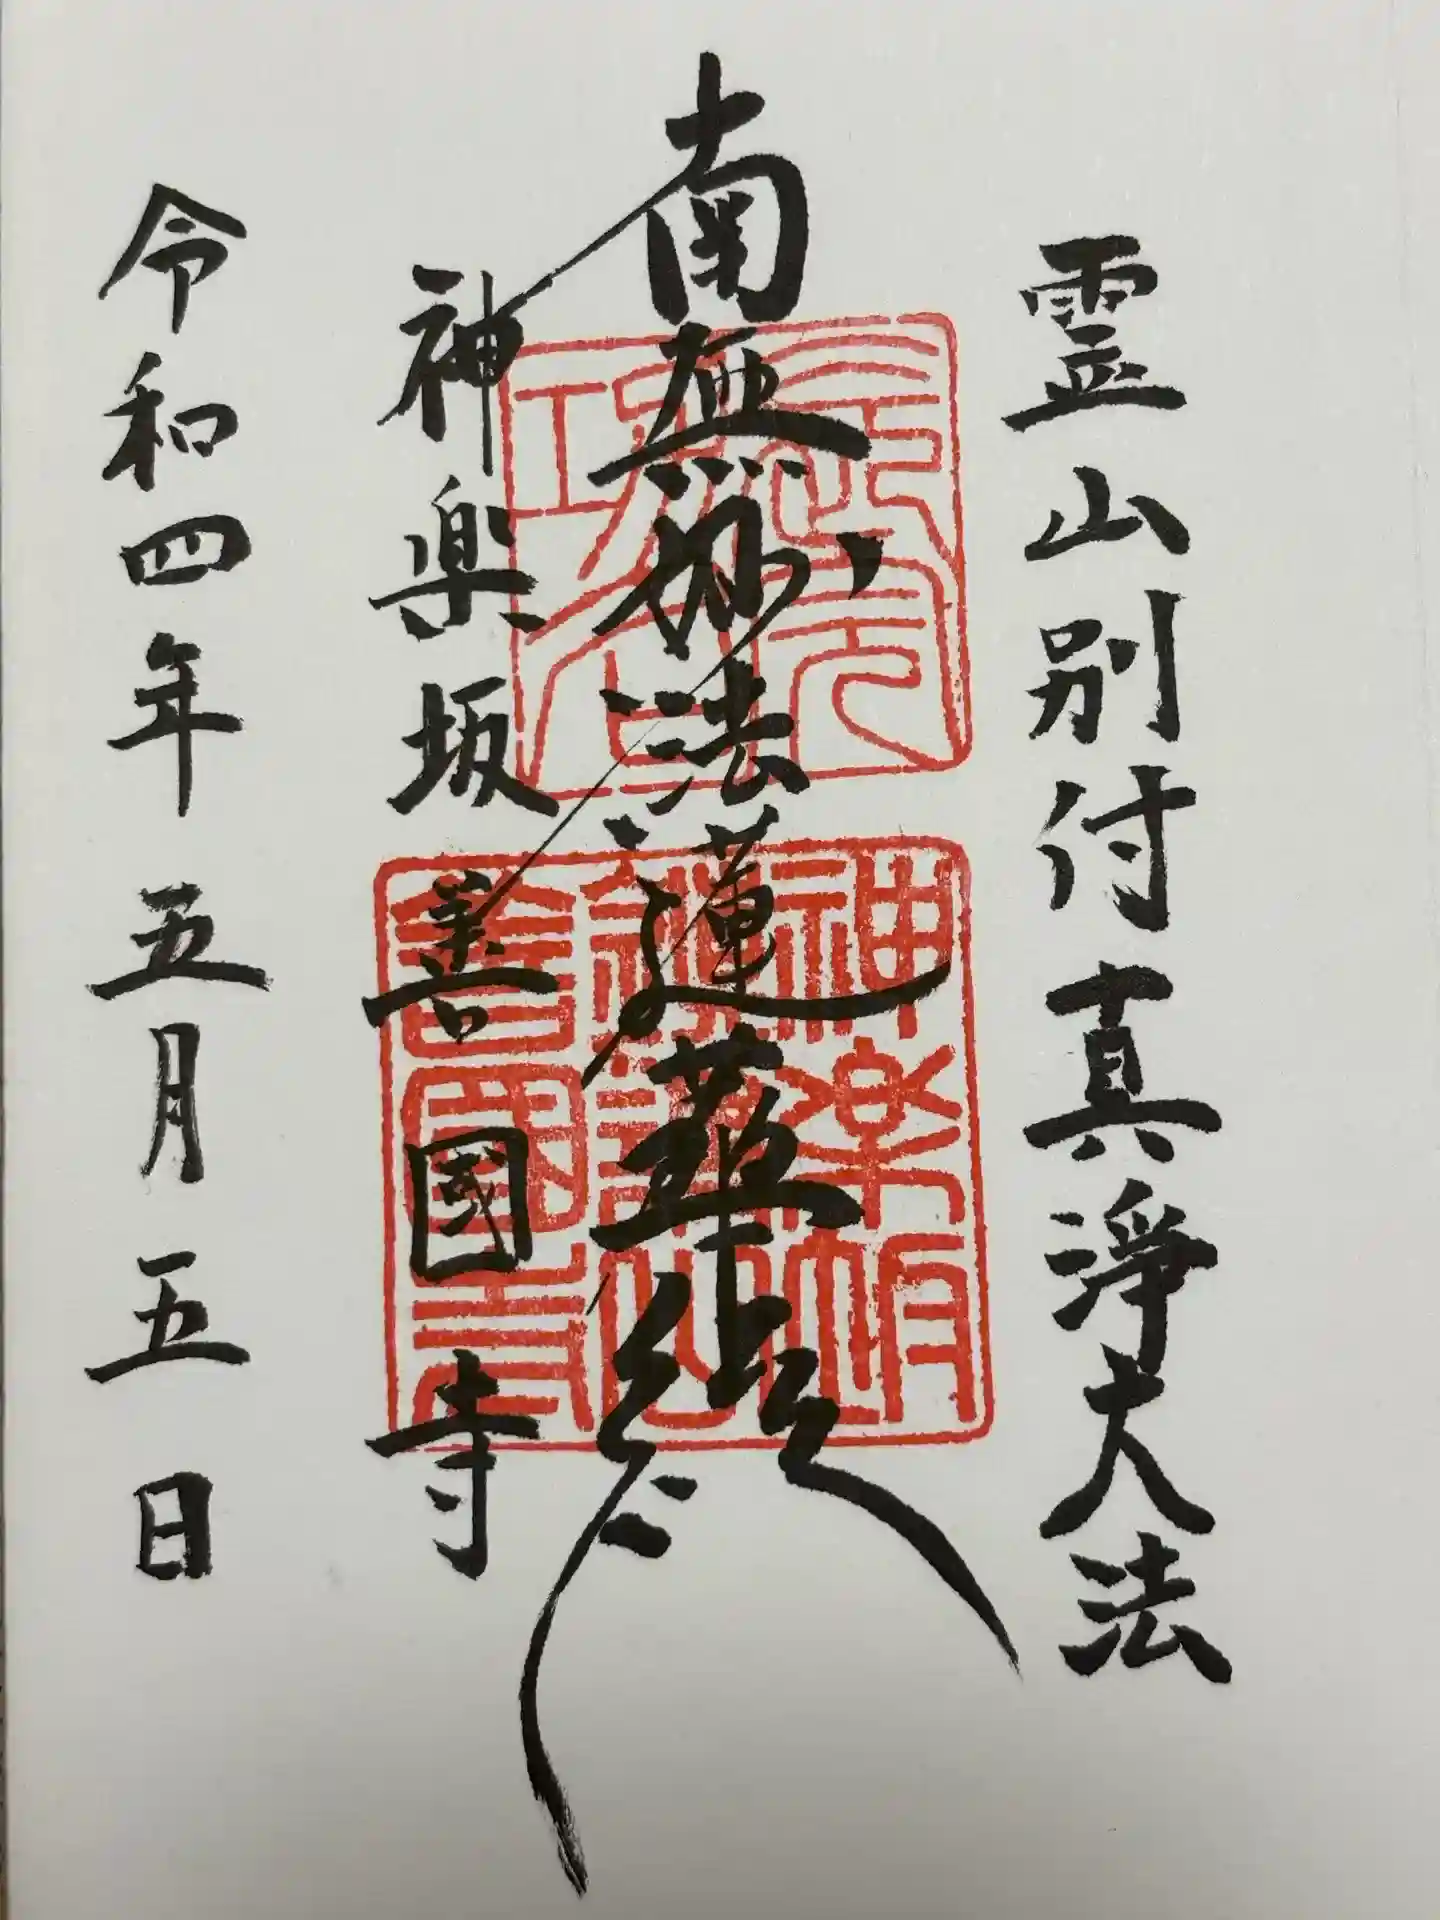 霊山別付真淨大法
南無妙法蓮華経
神楽坂善國寺
令和四年五月五日
神楽坂
鎮護山
善國寺